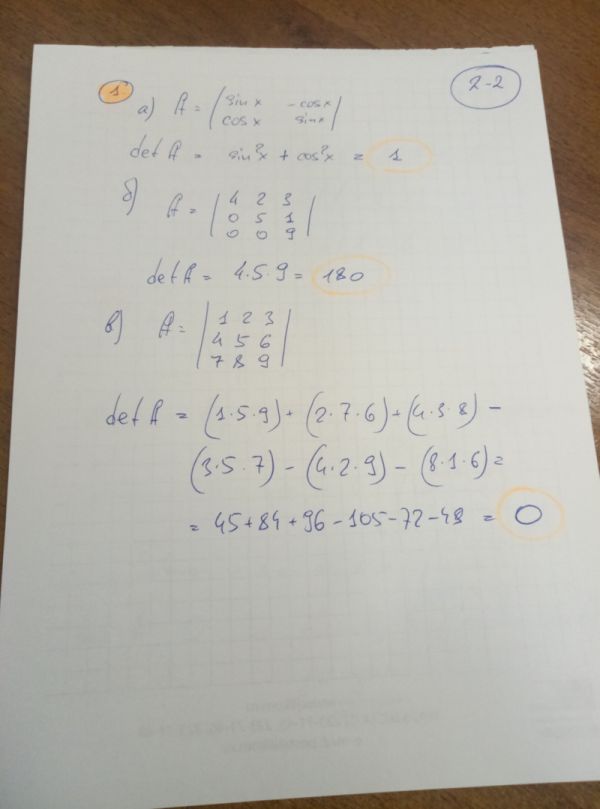 1
2-2
а) A = | sin x  -cos x |
| cos x  sin x |
det A = sin²x + cos²x = 1
б)
A = | 4 2 3 |
| 0 5 1 |
| 0 0 9 |
det A = 4·5·9 = 180
в) A = | 1 2 3 |
| 4 5 6 |
| 7 8 9 |
det A = (1·5·9) + (2·7·6) + (4·3·8) -
(3·5·7) - (4·2·9) - (8·1·6) =
= 45+84+96-105-72-48 = 0